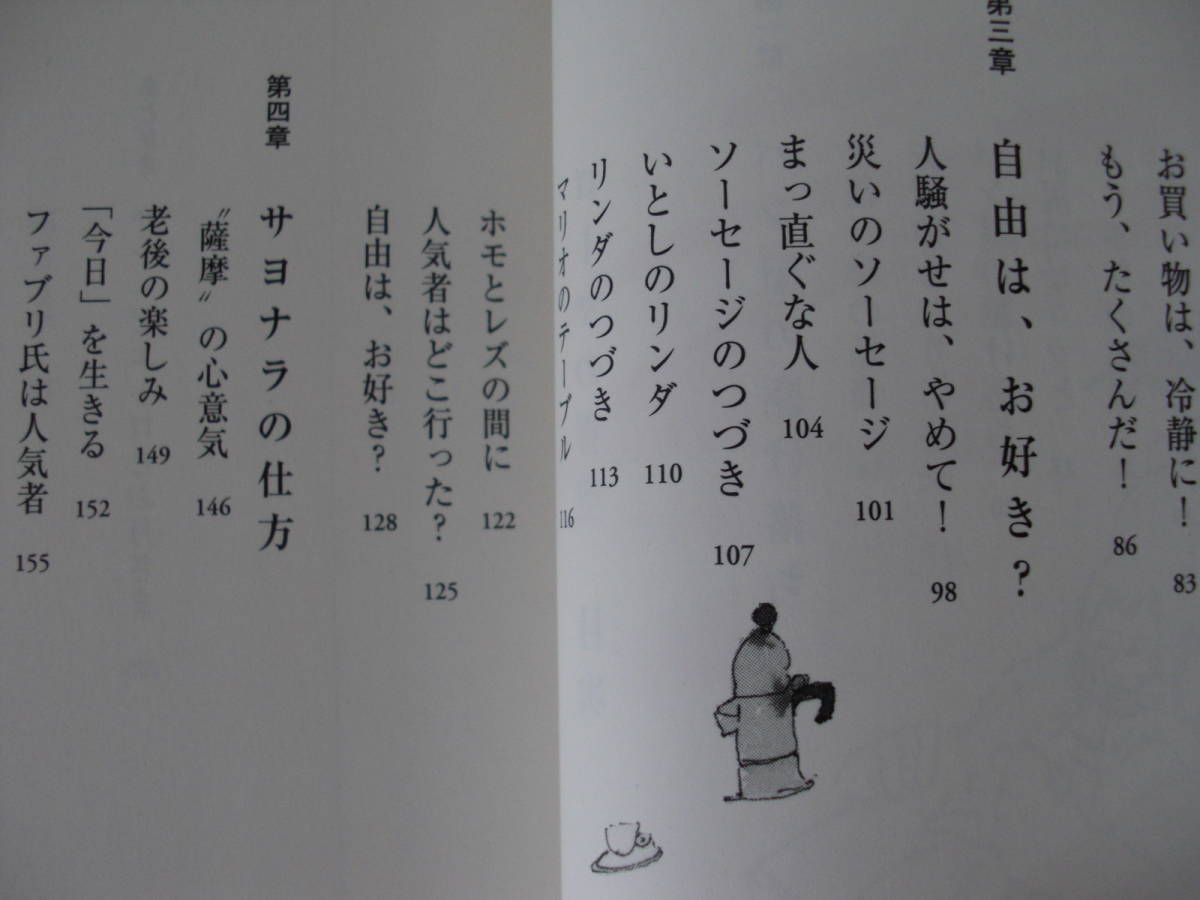 お買い物は、冷静に! 83
もう、たくさんだ! 86
第三章 自由は、お好き?
人騒がせは、やめて! 98
災いのソーセージ 101
まっ直ぐな人 104
ソーセージのつづき 107
いとしのリンダ 110
リンダのつづき 113
マリオのテーブル 116
ホモとレズの間に 122
人気者はどこ行った? 125
自由は、お好き? 128
第四章 サヨナラの仕方
〝薩摩〟の心意気 146
老後の楽しみ 149
「今日」を生きる 152
ファブリ氏は人気者 155